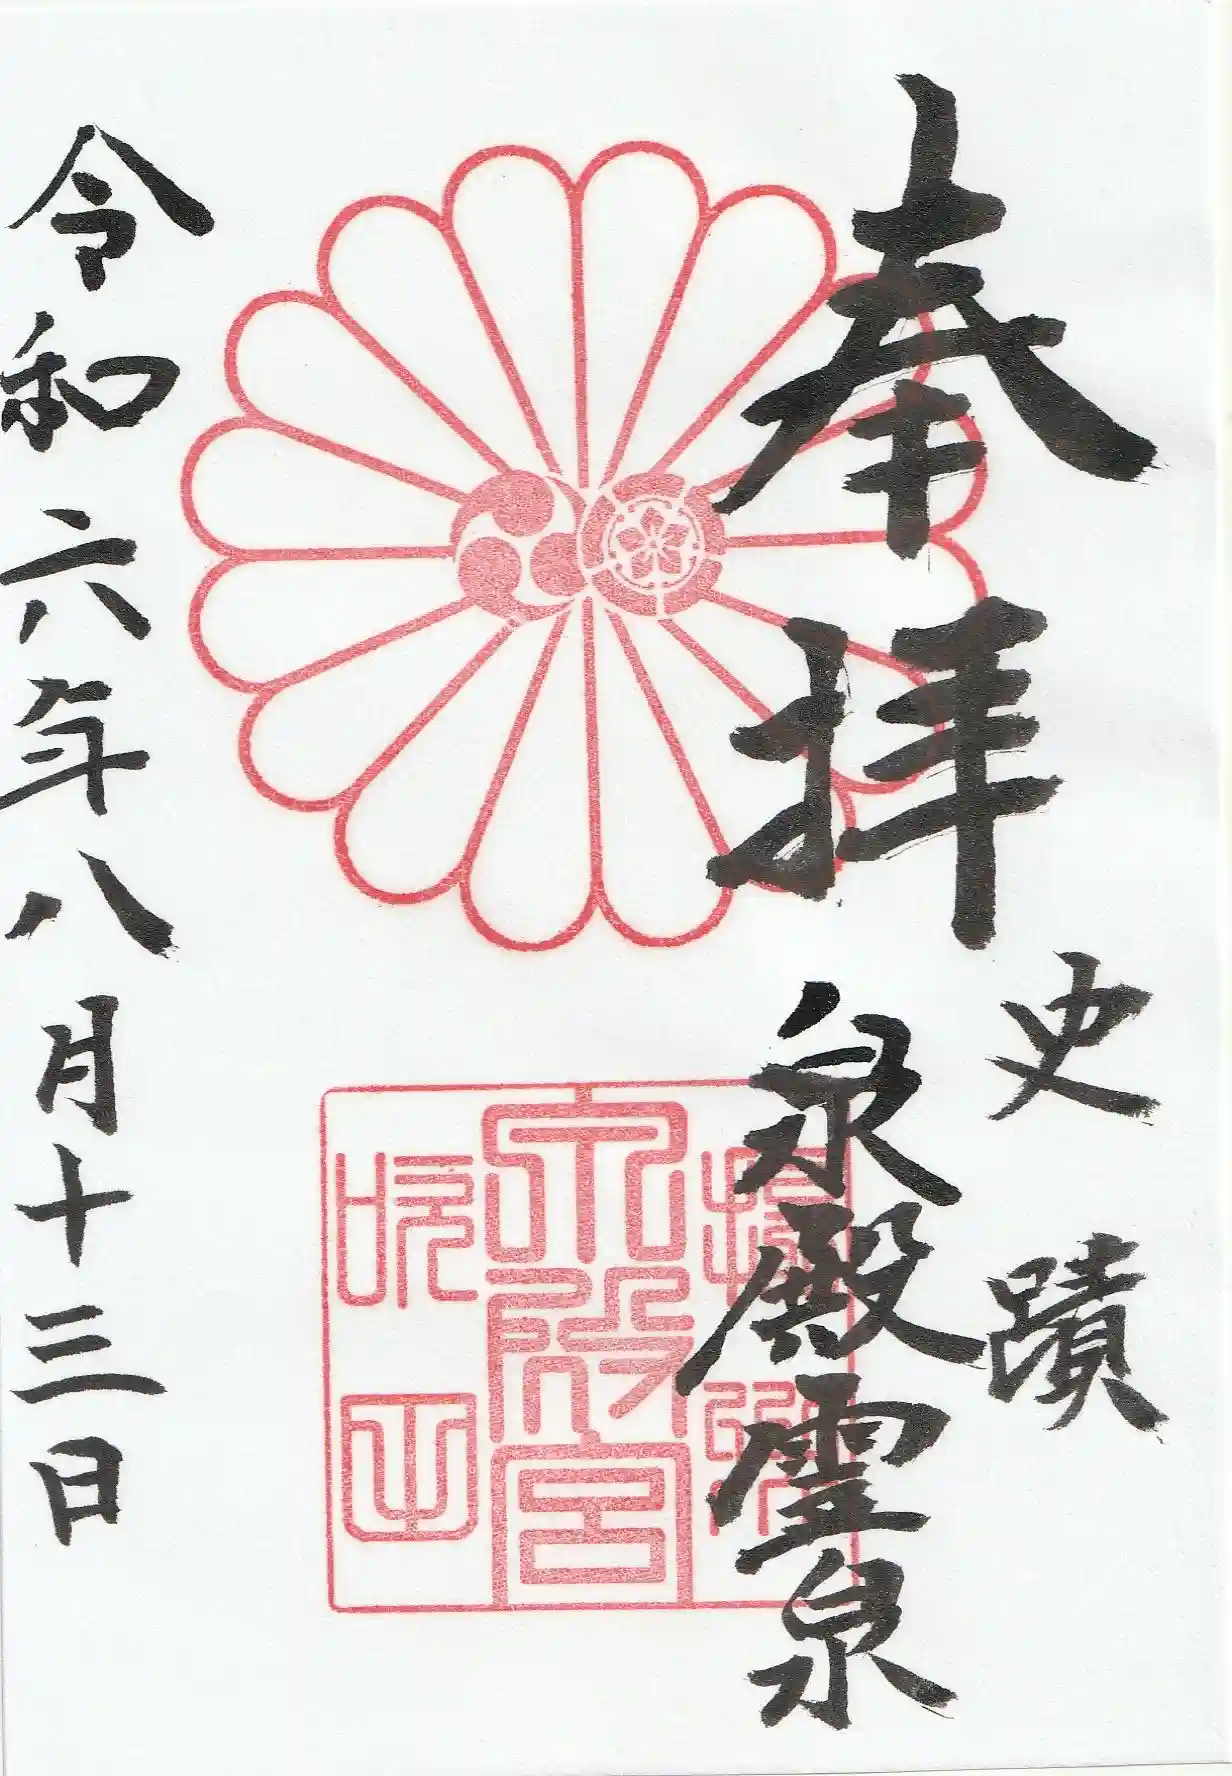 奉拝
史蹟
泉殿霊泉
令和六年八月十三日